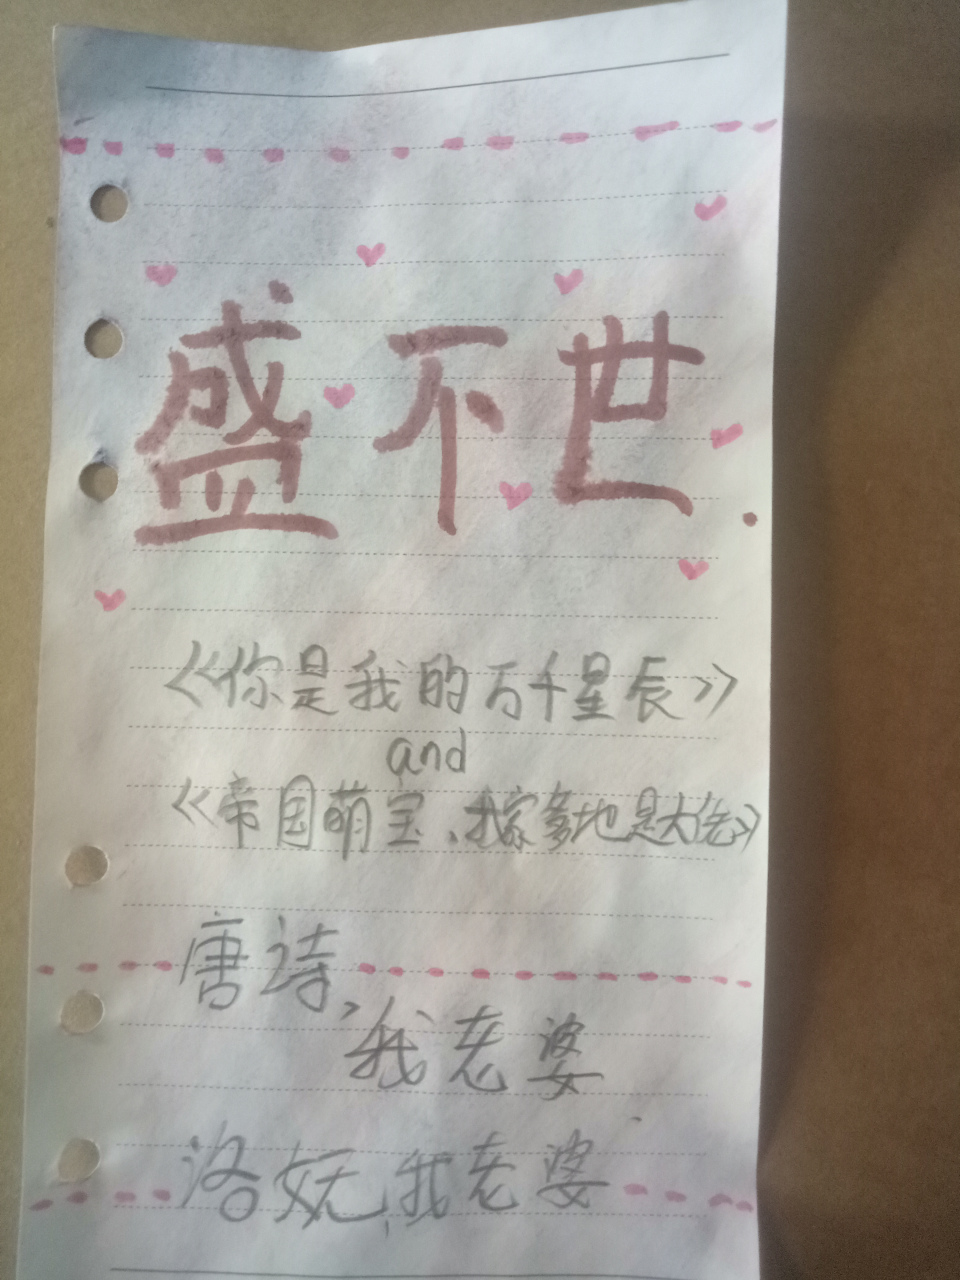 盛不世.
《你是我的万千星辰》
and
《帝国萌宝、我家爹地是大佬》
唐诗,
我老婆
洛妖,我老婆